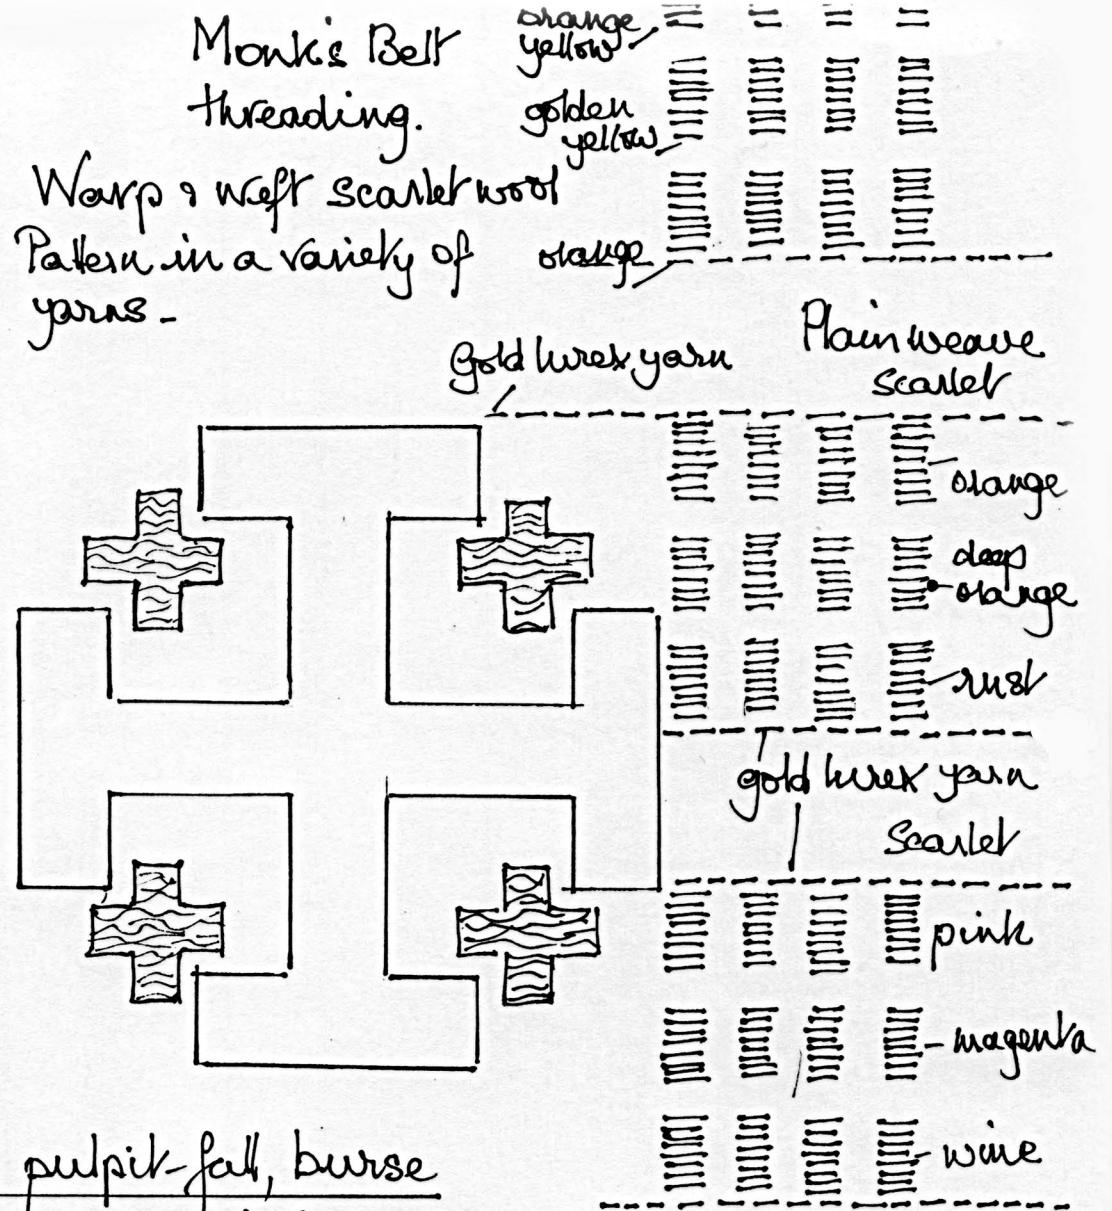 Monk's Belt
threading.
Warp & weft scarlet wool
Pattern in a variety of
yarns -
orange
yellow
golden
yellow
orange
Gold lurex yarn
Plain weave
scarlet
orange
deep
orange
rust
gold lurex yarn
Scarlet
pink
magenta
wine
pulpit-fall, burse